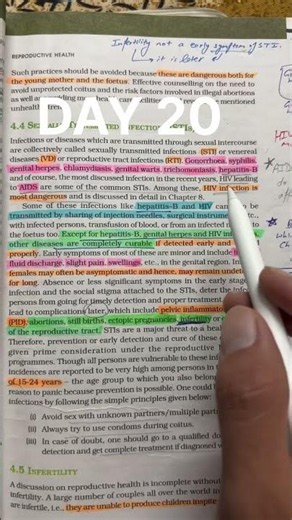 Infertility not a early symptom of STI.
it is later
REPRODUCTIVE HEALTH
Such practices should be avoided because these are dangerous both for
the young mother and the foetus. Effective counselling on the need to
avoid unprotected coitus and the risk factors involved in illegal abortions
as well as
health care
mentioned
unhealth
DAY 20
4.4 S
Infections or diseases which are transmitted through sexual intercourse
are collectively called sexually transmitted infections (STI) or venereal
diseases (VD) or reproductive tract infections (RTI). Gonorrhoea, syphilis,
genital herpes, chlamydiasis, genital warts, trichomoniasis, hepatitis-B
and of course, the most discussed infection in the recent years, HIV leading
to AIDS are some of the common STIs. Among these, HIV infection is
most dangerous and is discussed in detail in Chapter 8.
Some of these infections like hepatitis-B and HIV can
be
transmitted by sharing of injection needles, surgical instruments, etc.,
with infected persons, transfusion of blood, or from an infected m
to the foetus too. Except for hepatitis-B, genital herpes and HIV infec
other diseases are completely curable if detected early and
properly. Early symptoms of most of these are minor and include
fluid discharge, slight pain, swellings, etc., in the genital region.
females may often be asymptomatic and hence, may remain unde
for long. Absence or less significant symptoms in the early stage
infection and the social stigma attached to the STIs, deter the infe
persons from going for timely detection and proper treatment.
lead to complications later, which include pelvic inflammator
(PID), abortions, still births, ectopic pregnancies, infertility or
of the reproductive tract. STIs are a major threat to a heal
Therefore, prevention or early detection and cure of these
given prime consideration under the reproductive
programmes. Though all persons are vulnerable to these infe
incidences are reported to be very high among persons in
of 15-24 years – the age group to which you also belong
reason to panic because prevention is possible. One could
infections by following the simple principles given below:
(i) Avoid sex with unknown partners/multiple part
(ii) Always try to use condoms during coitus.
(iii) In case of doubt, one should go to a qualified do
detection and get complete treatment if diagnosed w
4.5 INFERTILITY
A discussion on reproductive health is incomplete without
infertility. A large number of couples all over the world in
are infertile, i.e., they are unable to produce children inspite